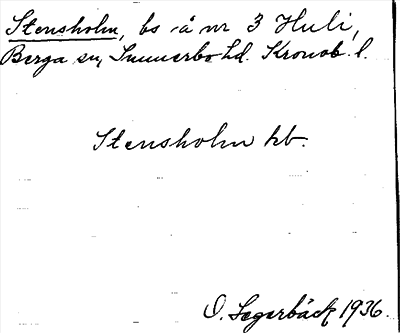 Stensholm, bs å nr 3 Huli,
Berga sn, Sunnerbo hd. Kronob. l.
Stensholm hb.
O. Segerbäck 1936.